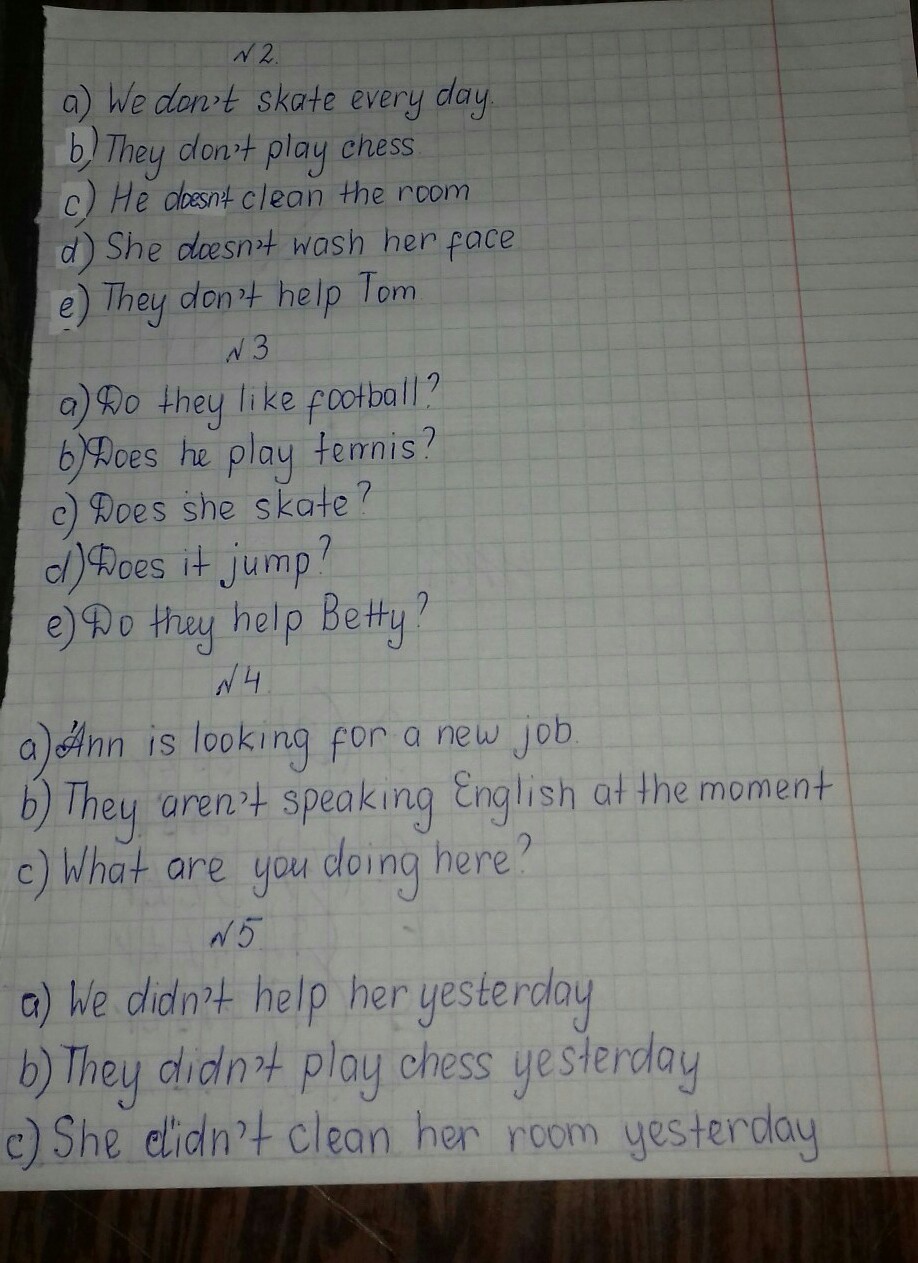 №2.
a) We don't skate every day.
b) They don't play chess
c) He doesn't clean the room
d) She doesn't wash her face
e) They don't help Tom
№3
a) Do they like football?
b) Does he play tennis?
c) Does she skate?
d) Does it jump?
e) Do they help Betty?
№4
a) Ann is looking for a new job.
b) They aren't speaking English at the moment
c) What are you doing here?
№5
a) We didn't help her yesterday
b) They didn't play chess yesterday
c) She didn't clean her room yesterday